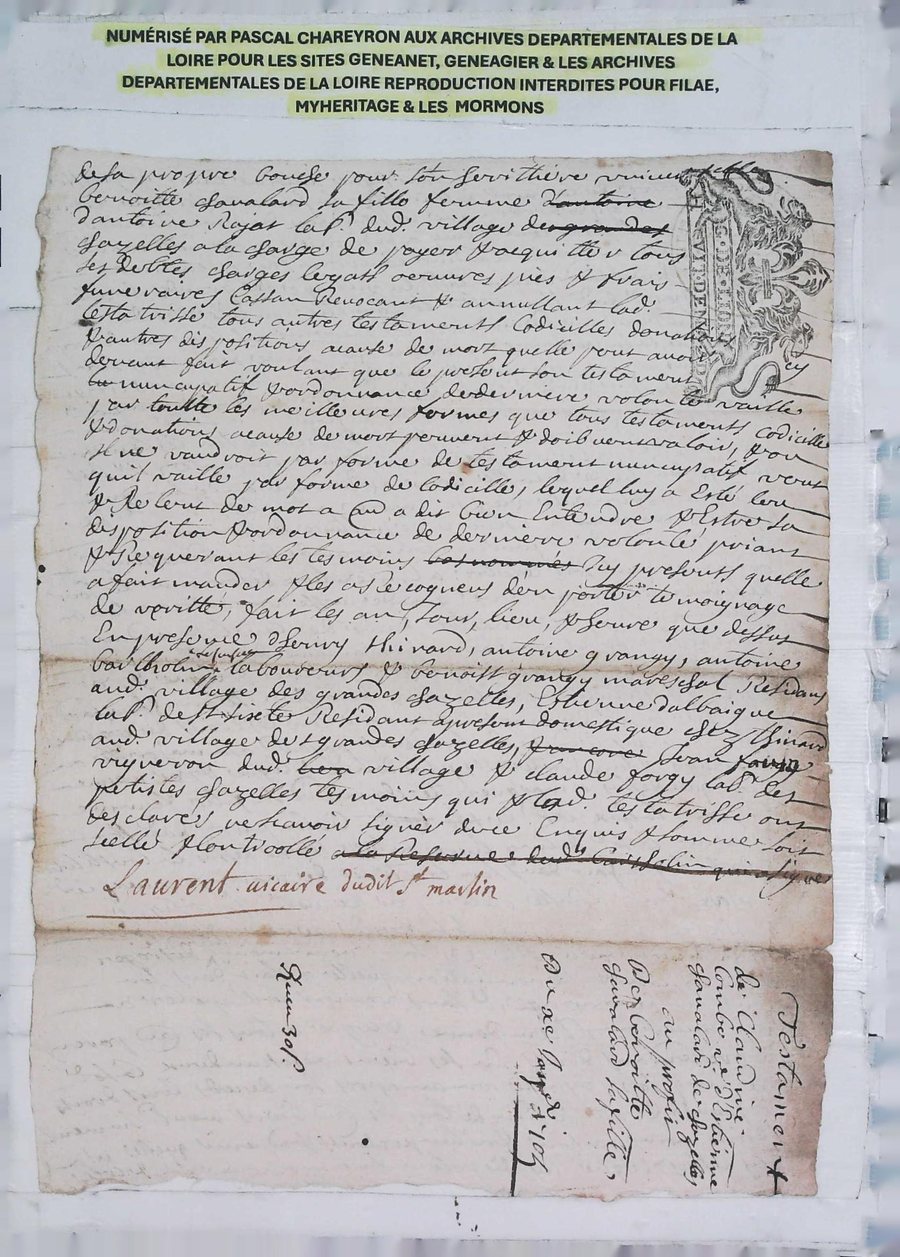 NUMÉRISÉ PAR PASCAL CHAREYRON AUX ARCHIVES DEPARTEMENTALES DE LA
LOIRE POUR LES SITES GENEANET, GENEAGIER & LES ARCHIVES
DEPARTEMENTALES DE LA LOIRE REPRODUCTION INTERDITES POUR FILAE,
MYHERITAGE & LES MORMONS
de sa propre bouche pour son heritiere
benoitte chavalard sa fille femme d'antoine
d'antoine Rojat lab.r dud. village de grandes
chazelles a la charge de payer & acquitter tous
ses debtes charges legats oeuvres pies & frais
funeraires Cassant Revocant & annullant lad.
testatrisse tous autres testaments Codicilles donations
& autres dispositions acause de mort quelle peut avoir cy
devant fait voulant que le present son testament
nuncupatif & ordonnance de derniere volonté vaille
par toutte les meilleures formes que tous testaments codicille
& donations acause de mort peuvent & doibuent valoir, & ou
il ne vaudroit par forme de testament nuncupatif veut
quil vaille par forme de Codicille, lequel luy a Esté leu
& Releut de mot a a dit bien Entendre & Estre sa
disposition & ordonnance de derniere volonté priant
& Requerant les tesmoins les nommés Icy presents quelle
a fait mander & les a Recogneus d'en porter temoignage
de veritté, fait les an, Jour, lieu, & heure que dessus
En presence d'henry thinard, antoine grangy, antoine
bartholin laboureurs & benoist grangy mareschal Residans
aud. village des grandes chazelles, Estienne dalbaigue
lab.r de st sixte Residant apresent domestique chez thinard
aud. village des grandes chazelles, Jean
vigneron dud. village & claude forgy lab.r des
petistes chazelles tesmoins qui & lad. testatrisse ont
desclarés ne sçavoir signer de ce Enquis & somme soit
scellé & controollé a la Reserve dud. barthollin qui a signé
Laurent vicaire dudit St martin
Testament
de claudine
Combe v.e d'Estienne
chavalard de chazelles
au profit
de benoitte
chavalard sa fille
Du xe 1705
HVIT DEN